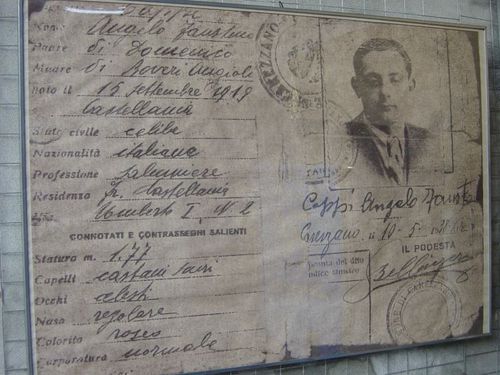 Nome Angelo Fausto
Padre di Domenico
Madre di Boveri Angiola
Nato il 15 settembre 1919
Castellania
Stato civile celibe
Nazionalità italiana
Professione salumiere
Residenza Fr. Castellania
Via Umberto I, N. 2
CONNOTATI E CONTRASSEGNI SALIENTI
Statura m. 1.77
Capelli castani scuri
Occhi celesti
Naso regolare
Colorito roseo
Corporatura normale
Coppi Angelo Fausto
10-5-
IL PODESTÀ
Impronta del dito
indice sinistro